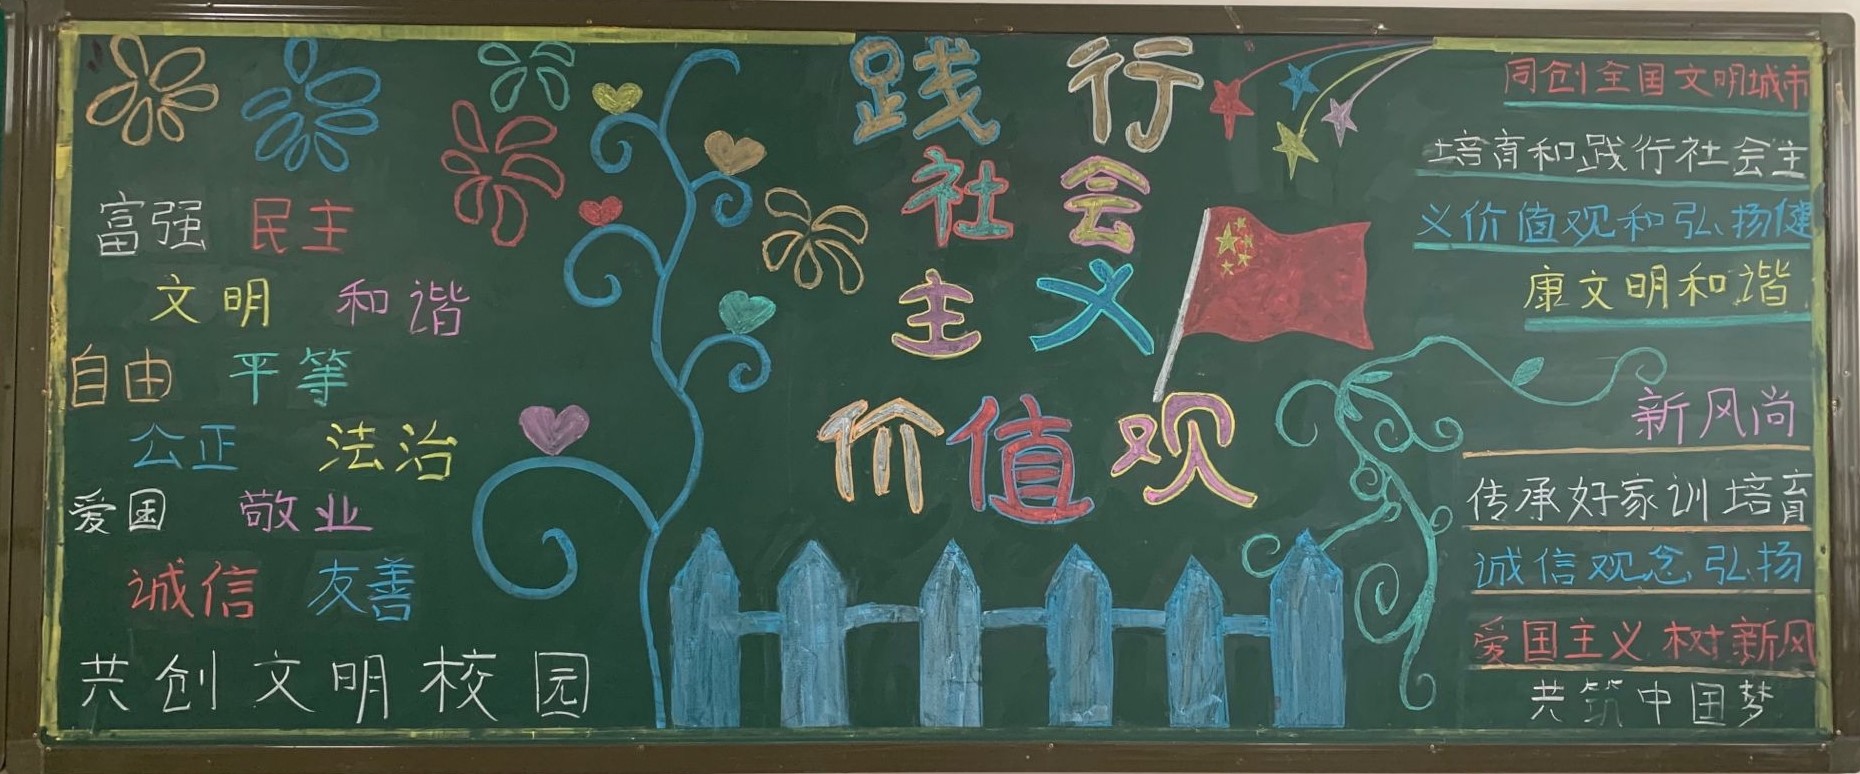 富强 民主
文明 和谐
自由 平等
公正 法治
爱国 敬业
诚信 友善
共创文明校园
践行
社会
主义
价值观
同创全国文明城市
培育和践行社会主
义价值观和弘扬健
康文明和谐
新风尚
传承好家训培育
诚信观念弘扬
爱国主义树新风
共筑中国梦